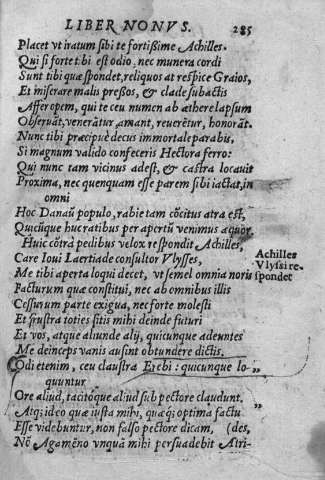 LIBER NONVS. 285
Placet vt iratum sibi te fortißime Achilles.
Qui si forte tibi est odio, nec munera cordi
Sunt tibi quæ spondet, reliquos at respice Graios,
Et miserare malis preßos, & clade subactis
Affer opem, qui te ceu numen ab æthere lapsum
Obseruãt, venerãtur, amant, reuerẽtur, honorãt.
Nunc tibi præcipuè decus immortale parabis,
Si magnum valido confeceris Hectora ferro:
Qui nunc tam vicinus adest, & castra locauit
Proxima, nec quenquam esse parem sibi iactat, in
omni
Hoc Danaũ populo, rabie tam cõcitus atra est,
Quicũque huc ratibus per apertũ venimus æquor.
Huic cõtrà pedibus velox respondit Achilles,
Care Ioui Laertiade consultor Vlysses,
Achilles
Vlyssi re-
spondet
Me tibi aperta loqui decet, vt semel omnia noris
Facturum quæ constitui, nec ab omnibus illis
Cessurum parte exigua, nec forte molesti
Et frustra toties sitis mihi deinde futuri
Et vos, atque aliunde alij, quicunque adeuntes
Me deinceps vanis ausint obtundere dictis.
Odi etenim, ceu claustra Erebi: quicunque lo- „
quuntur
Ore aliud, tacitóque aliud sub pectore claudunt. „
Atq; ideo quæ iusta mihi, quæq; optima factu
Esse videbuntur, non falso pectore dicam, (des,
Nõ Agamẽno vnquã mihi persuadebit Atri-